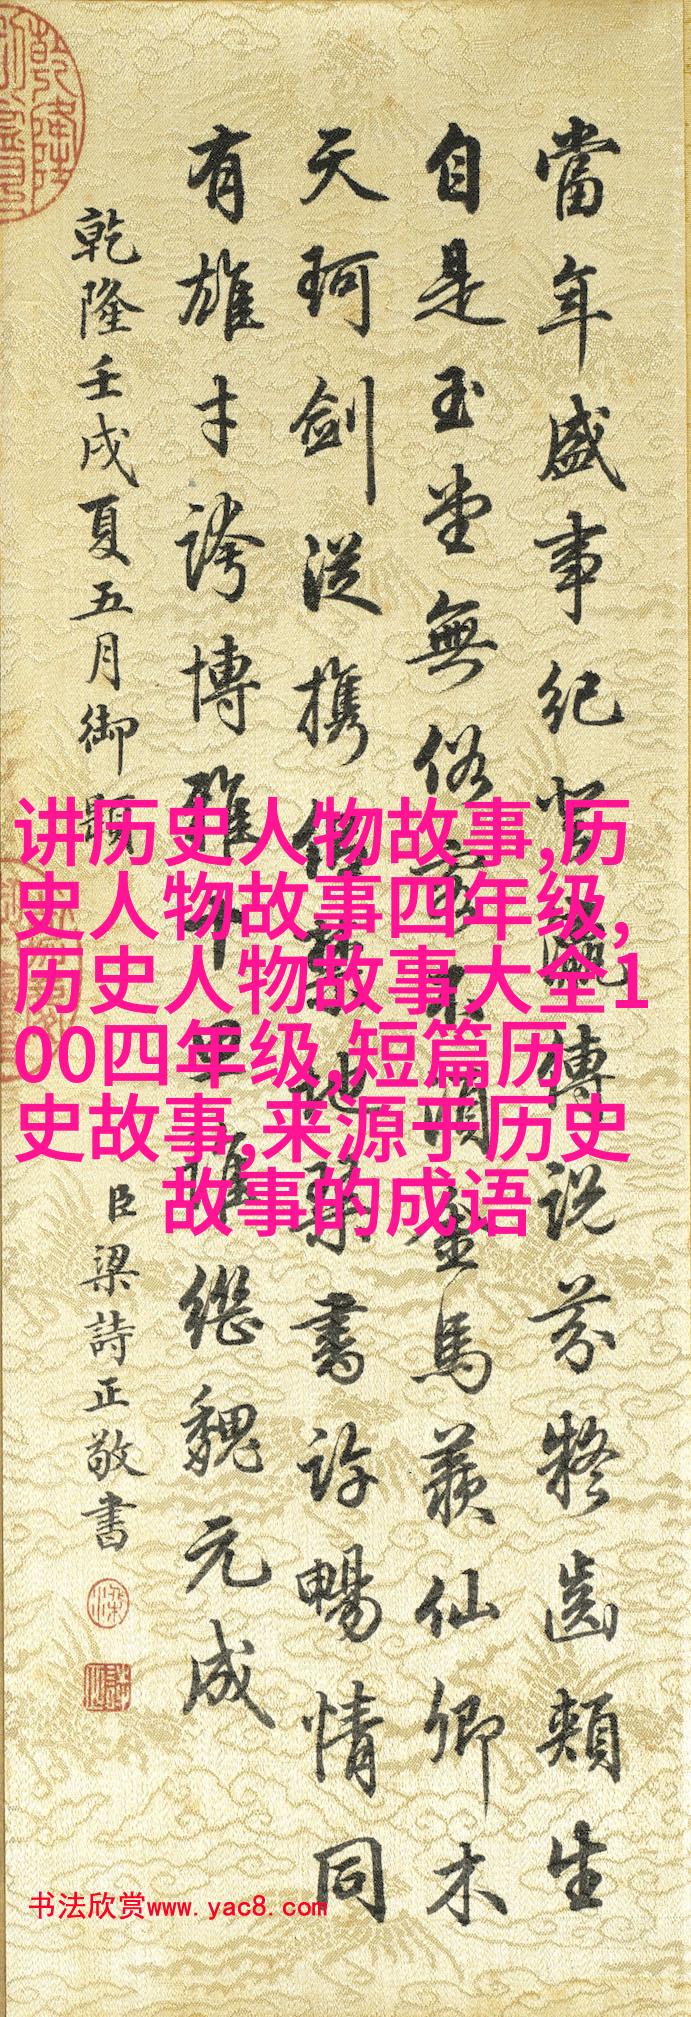 當年盛事紀瀛傳說芬凝齒頰生
自是玉堂無俗須金馬羨仙卿木
天珂劍從攜地琴書許暢情同
有雄才誇博雅誰繼魏元成
乾隆壬戌夏五月御題
臣梁詩正敬書
乾隆
讲历史人物故事,历
史人物故事四年级,
历史人物故事大全1
00四年级,短篇历
史故事,来源于历史
故事的成语
书法欣赏www.yac8.com